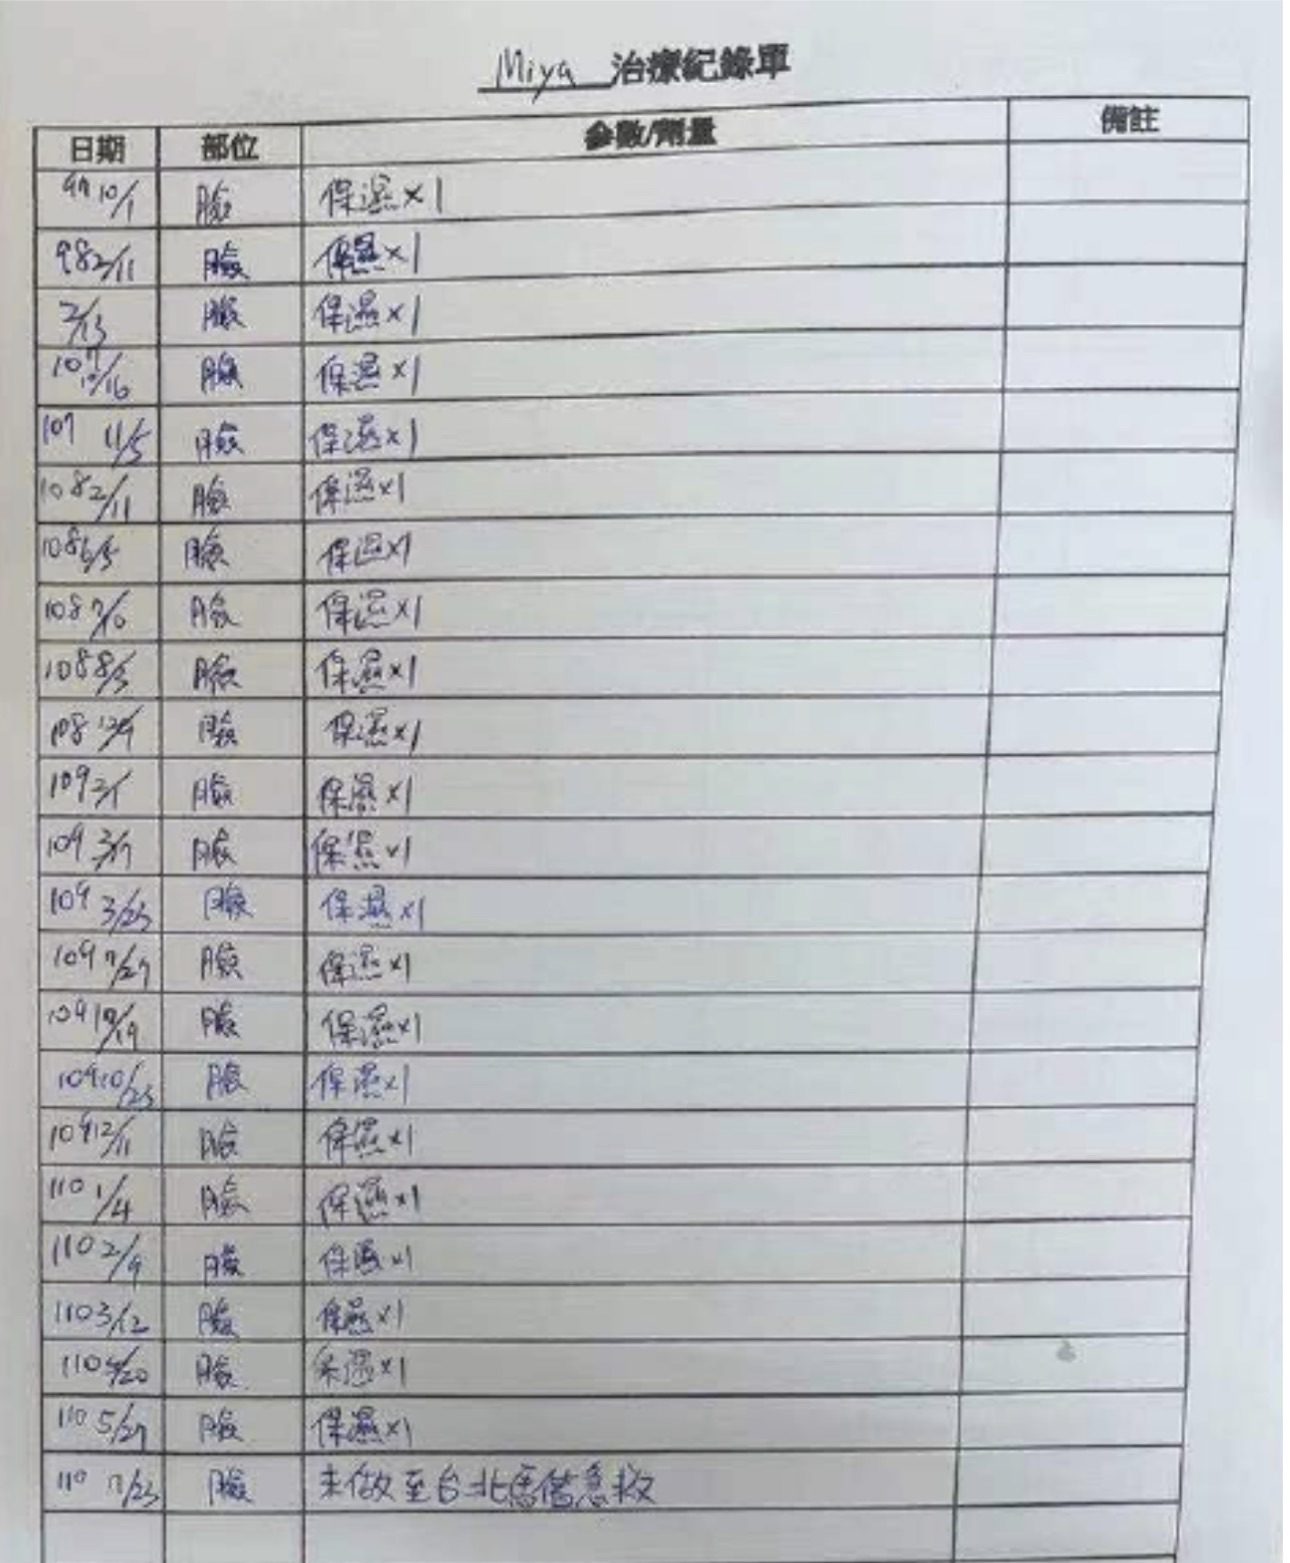 Miya 治療紀錄單
日期 部位 參數/劑量 備註
97 10/1 臉 保濕×1
98 2/11 臉 保濕×1
2/13 臉 保濕×1
107 10/16 臉 保濕×1
107 11/5 臉 保濕×1
108 2/11 臉 保濕×1
108 臉 保濕×1
108 臉 保濕×1
108 8/5 臉 保濕×1
108 臉 保濕×1
109 臉 保濕×1
109 臉 保濕×1
109 3/23 臉 保濕×1
109 7/27 臉 保濕×1
109 10/19 臉 保濕×1
109 10/23 臉 保濕×1
109 12/11 臉 保濕×1
110 1/4 臉 保濕×1
110 2/9 臉 保濕×1
110 3/12 臉 保濕×1
110 4/20 臉 保濕×1
110 5/27 臉 保濕×1
110 7/23 臉 未做至台北馬偕急救